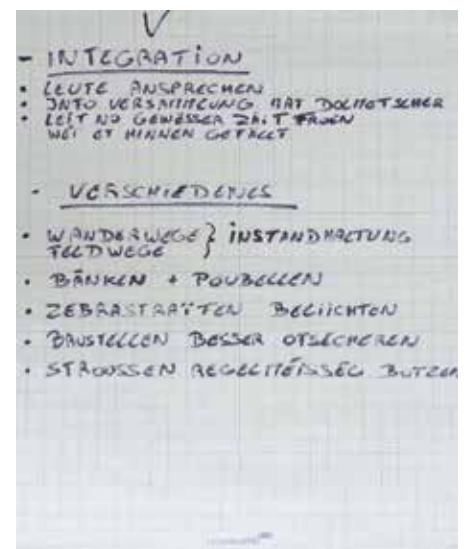 - INTEGRATION
• LEUTE ANSPRECHEN
• INFO VERSAMMLUNG MAT DOLMETSCHER
• LEIT NO GEWËSSER ZÄIT FROEN
WEI ET HINNEN GEFÄLLT
- VERSCHIEDENES
• WANDERWEGE } INSTANDHALTUNG
FELDWEGE
• BÄNKEN + POUBELLEN
• ZEBRASTRÄIFEN BELIICHTEN
• BAUSTELLEN BESSER OFSECHEREN
• STROOSSEN REGELMÉISSEG BOTZEN